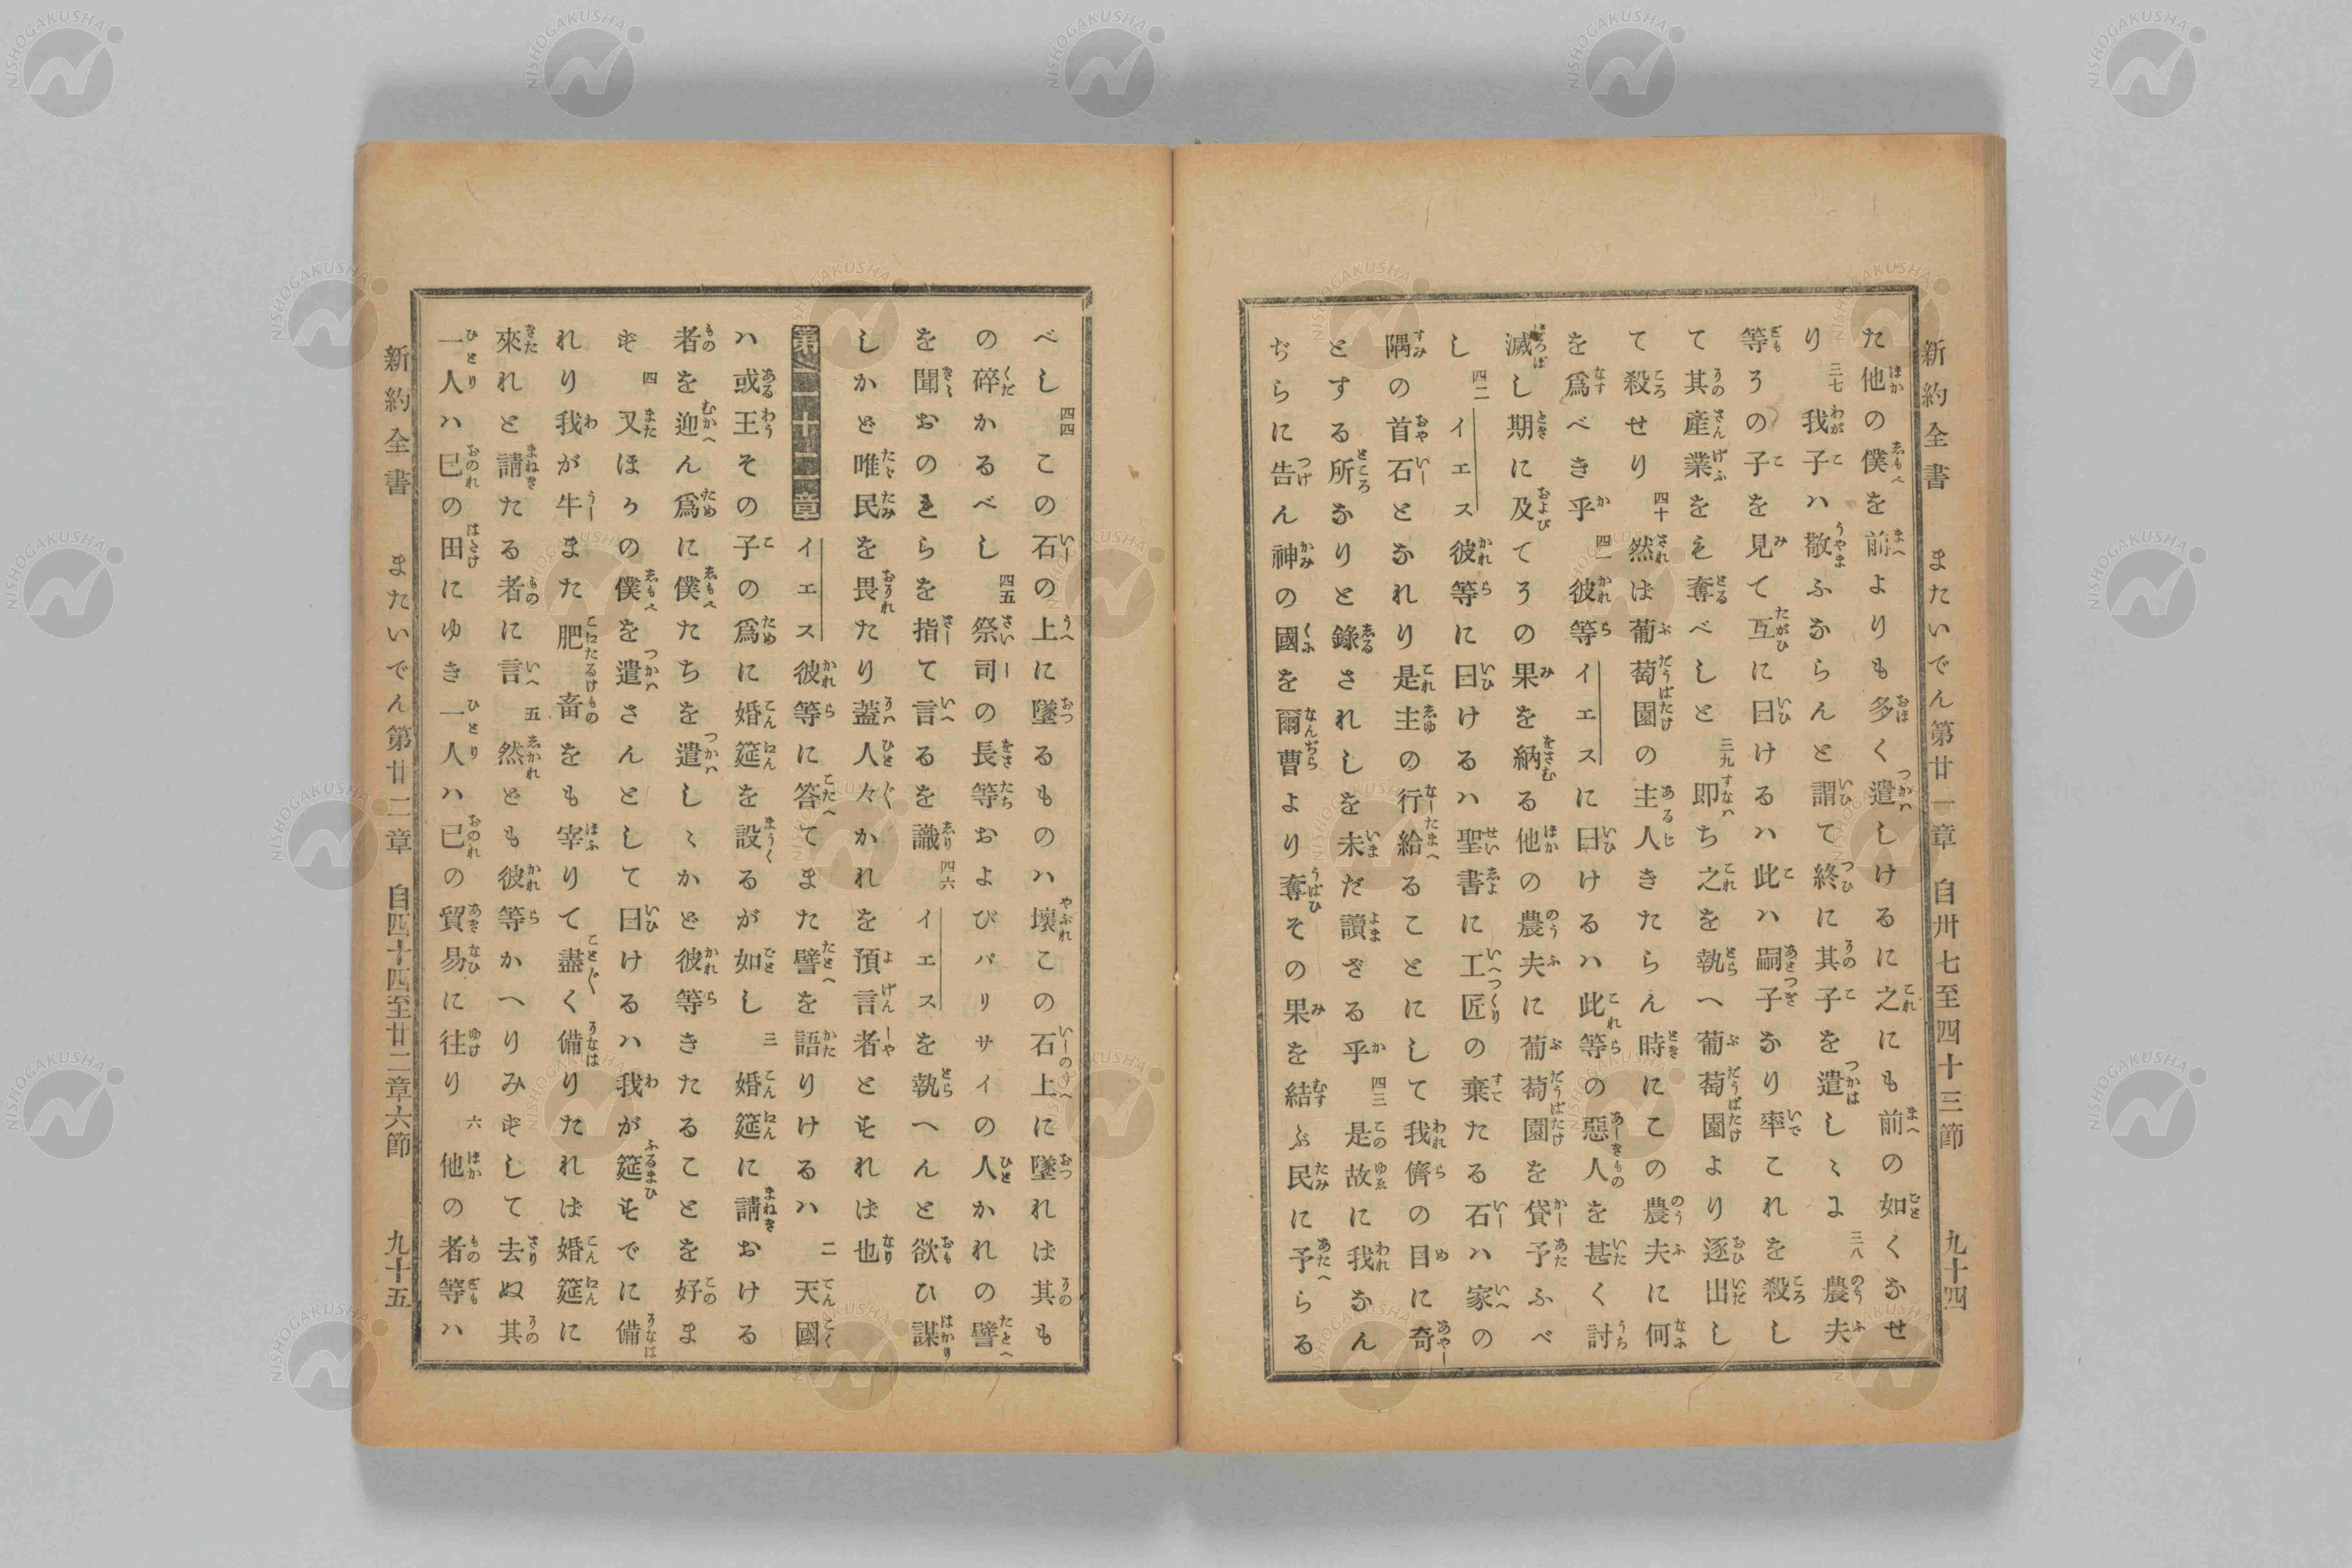 新約全書 またいでん第廿一章 自卅七至四十三節 九十四
た他の僕を前よりも多く遣しけるに之にも前の如くなせ
り 三七 我子ハ敬ふならんと謂て終に其子を遣しゝに 三八 農夫
等その子を見て互に曰けるハ此ハ嗣子なり率これを殺し
て其產業をも奪べしと 三九 即ち之を執へ葡萄園より逐出し
て殺せり 四十 然は葡萄園の主人きたらん時にこの農夫に何
を爲べき乎 四一 彼等イエスに曰けるハ此等の惡人を甚く討
滅し期に及てその果を納る他の農夫に葡萄園を貸予ふべ
し 四二 イエス彼等に曰けるハ聖書に工匠の棄たる石ハ家の
隅の首石となれり是主の行給ることにして我儕の目に奇
とする所なりと錄されしを未だ讀ざる乎 四三 是故に我なん
ぢらに告ん神の國を爾曹より奪その果を結ぶ民に予らる
べし 四四 この石の上に墜るものハ壞この石上に墜れは其も
の碎かるべし 四五 祭司の長等およびパリサイの人かれの譬
を聞おのれらを指て言るを識 四六 イエスを執へんと欲ひ謀
しかど唯民を畏たり蓋人々かれを預言者とすれば也
第二十二章 イエス彼等に答てまた譬を語りけるハ 二 天國
ハ或王その子の爲に婚筵を設るが如し 三 婚筵に請おける
者を迎ん爲に僕たちを遣しゝかど彼等きたることを好ま
ず 四 又ほかの僕を遣さんとして曰けるハ我が筵すでに備
れり我が牛また肥畜をも宰りて盡く備りたれば婚筵に
來れと請たる者に言 五 然ども彼等かへりみずして去ぬ其
一人ハ己の田にゆき一人ハ己の貿易に往り 六 他の者等ハ
新約全書 またいでん第廿二章 自四十四至廿二章六節 九十五